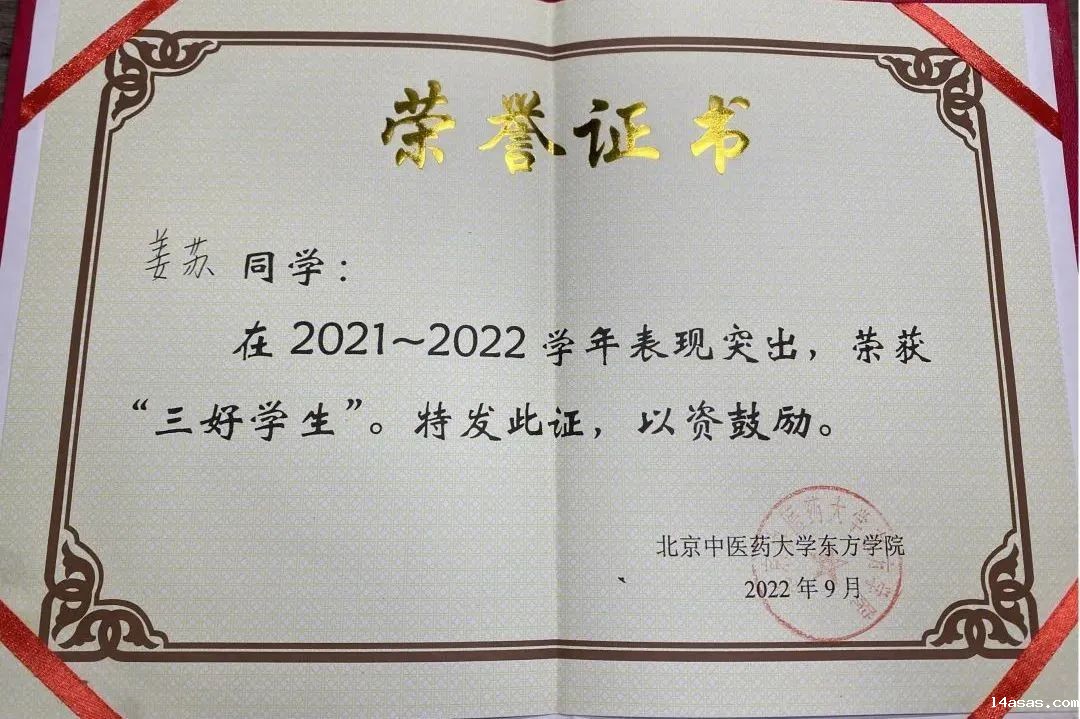 荣誉证书
姜苏 同学：
在 2021~2022 学年表现突出，荣获
“三好学生”。特发此证，以资鼓励。
北京中医药大学东方学院
2022 年 9 月
14asas.com